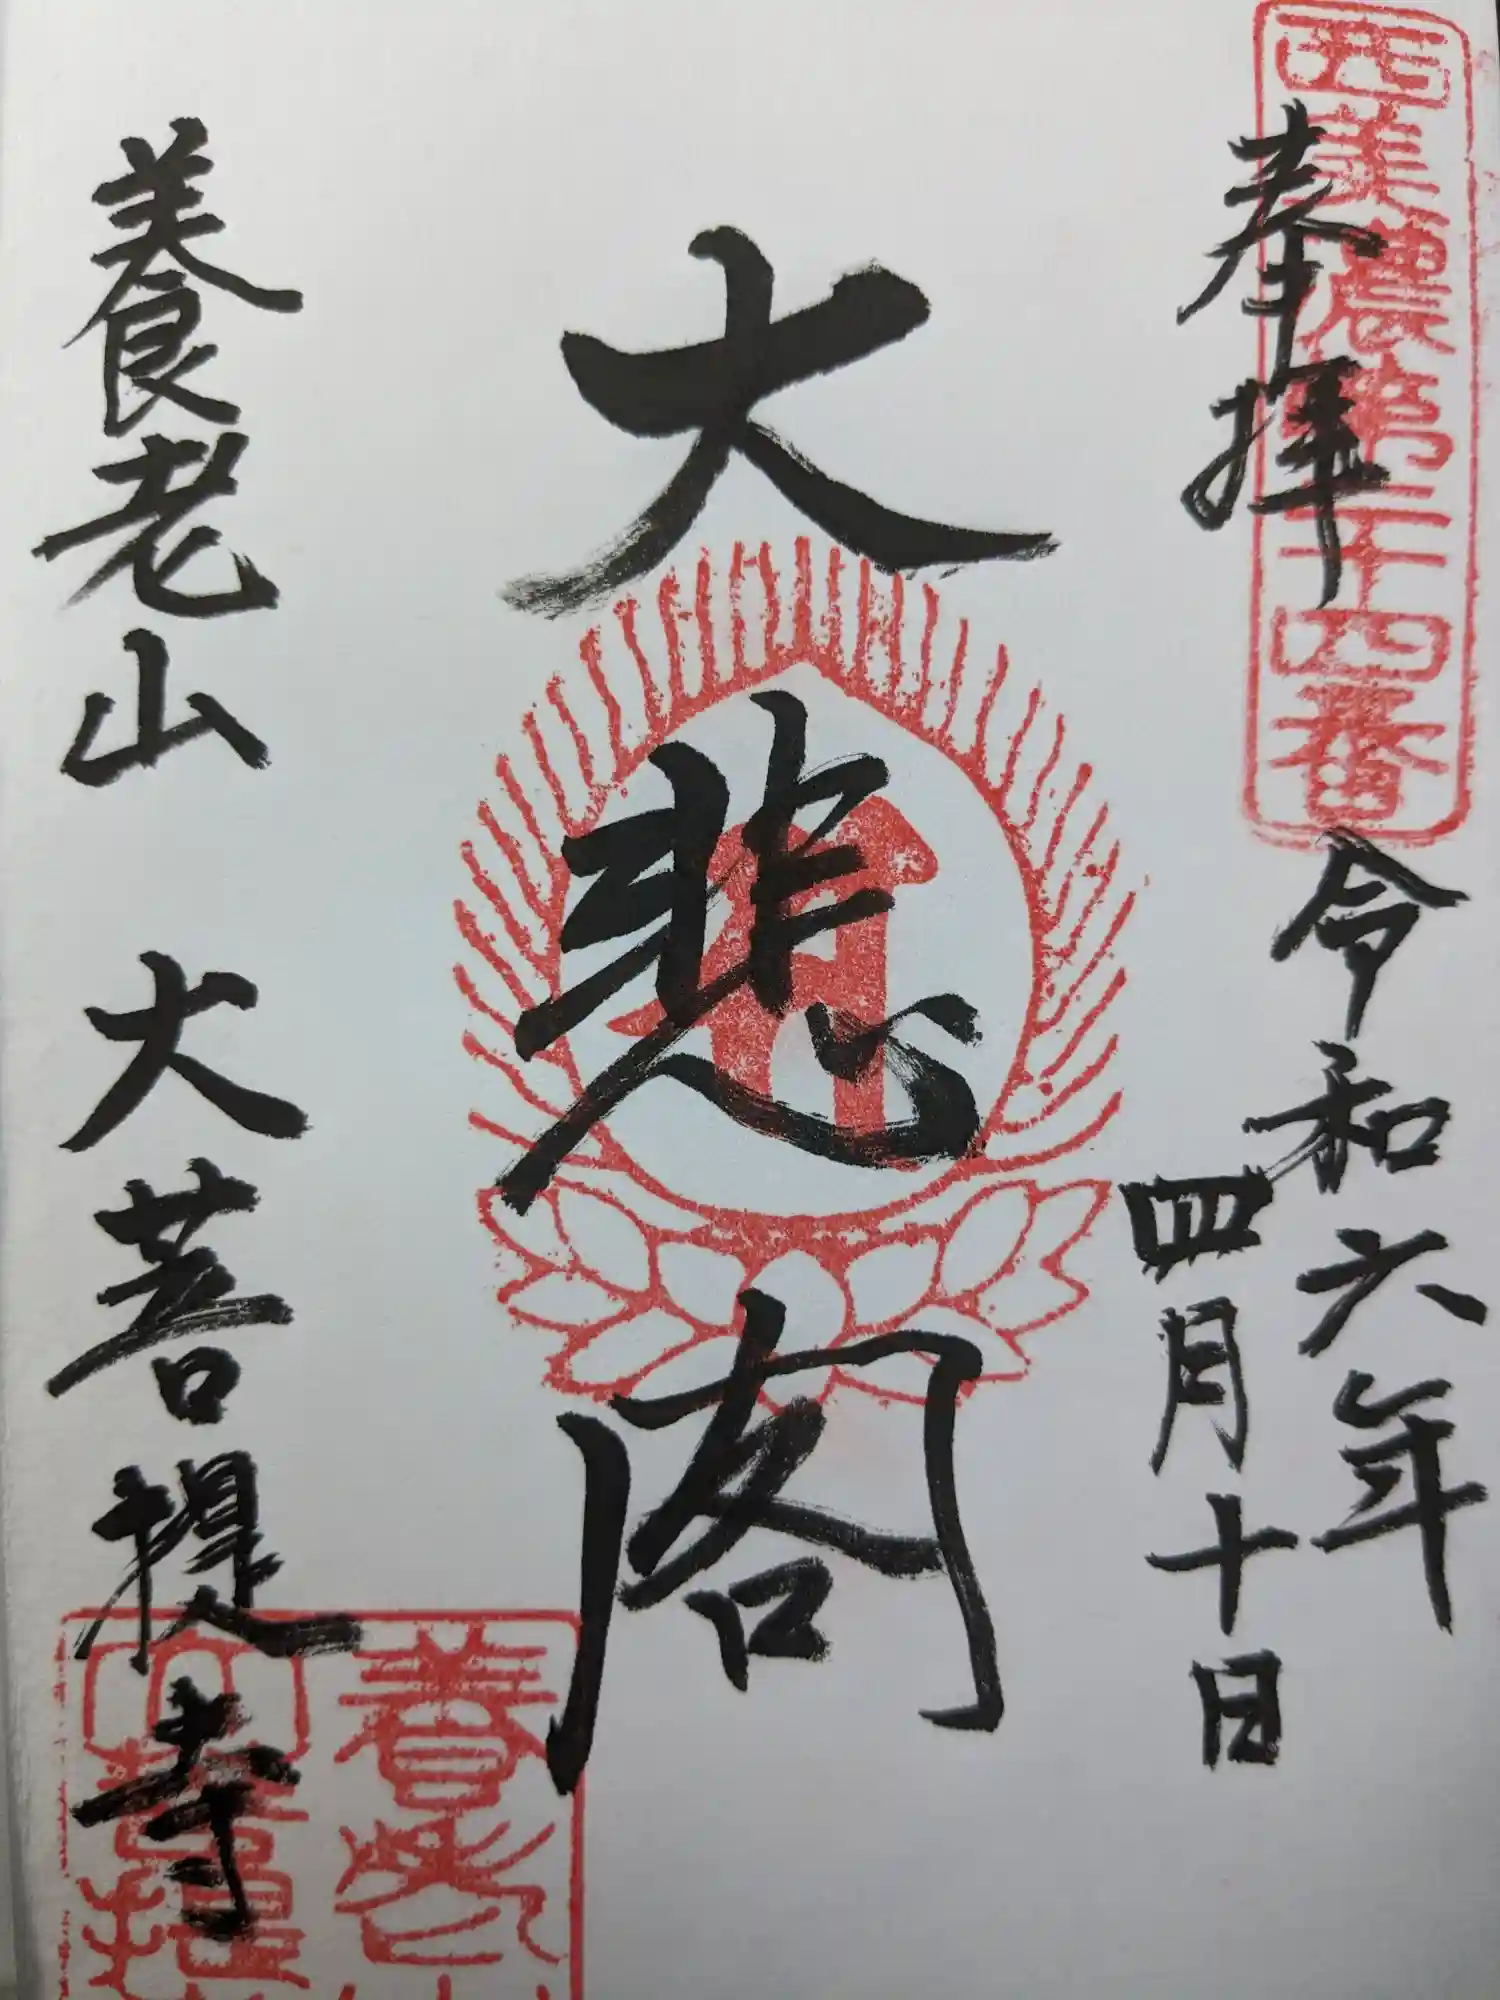 西美濃第二十四番
奉拝
令和六年
四月十日
大悲閣
養老山 大菩提寺
養老
大菩提